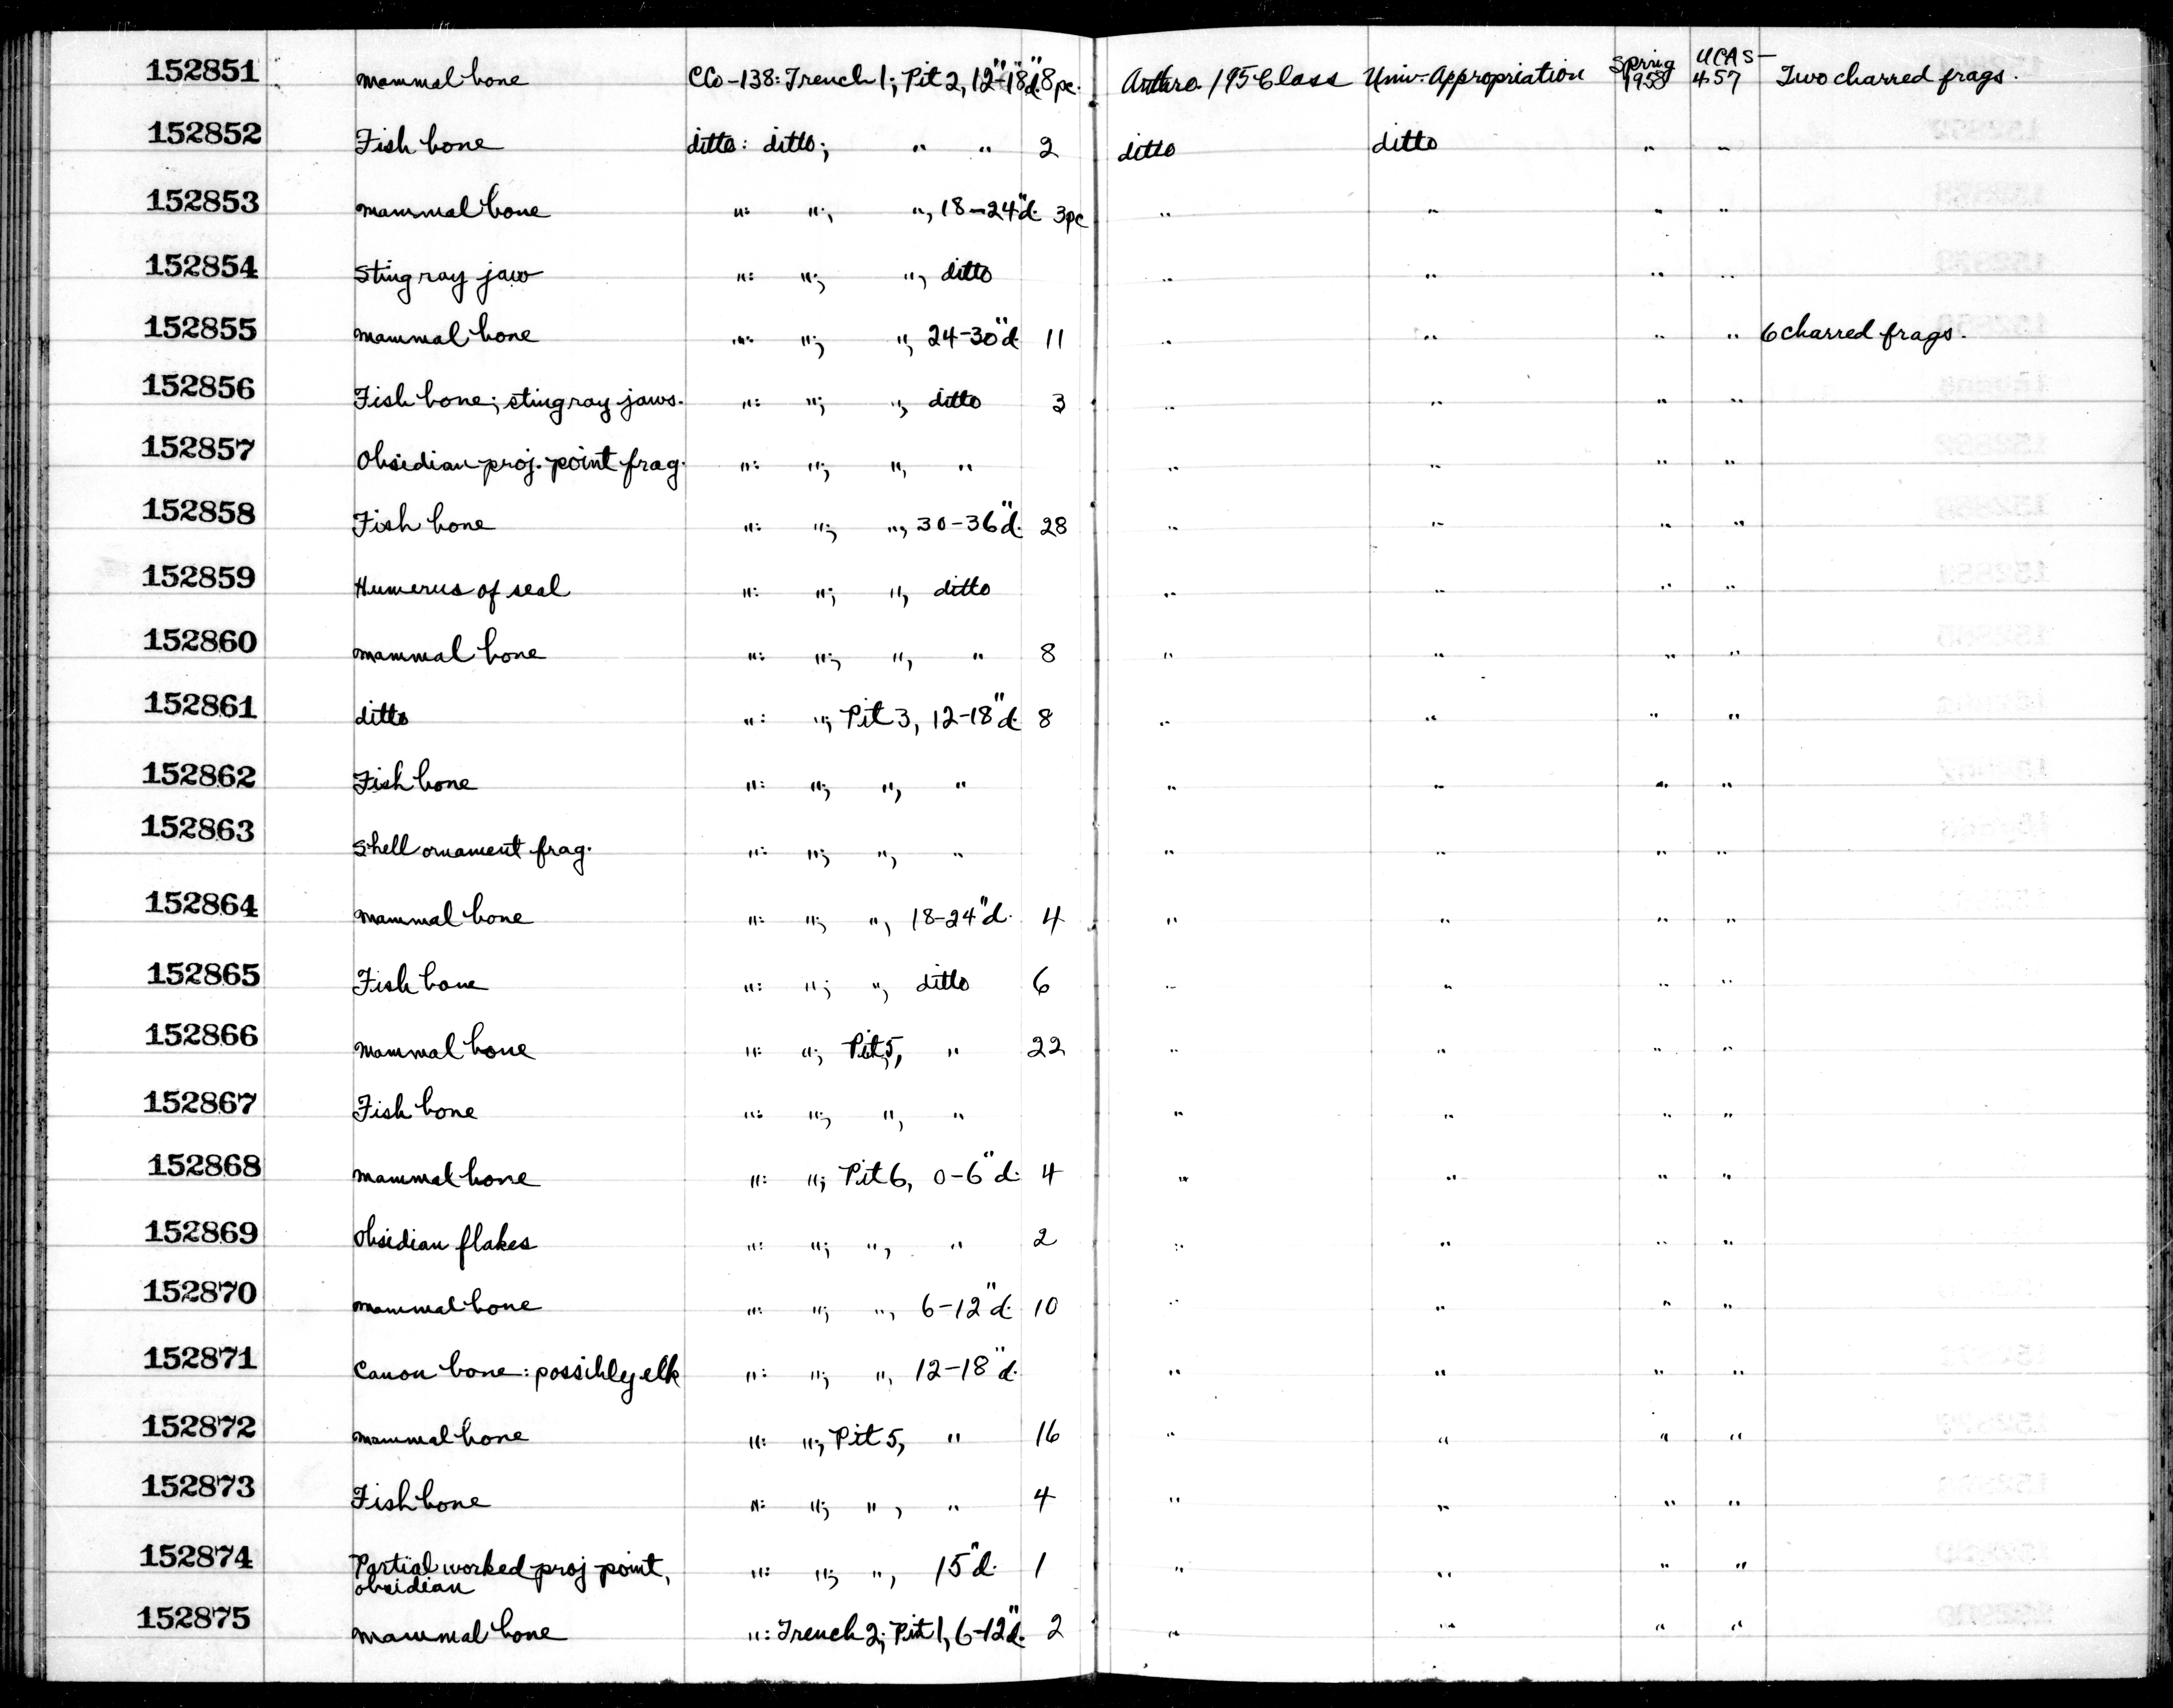 152851 Mammal bone CCo-138: Trench 1; Pit 2, 12"-18"d. 8pc. Anthro. 195 Class Univ. Appropriation Spring 1958 UCAS-457 Two charred frags.
152852 Fish bone ditto: ditto; " " 2 ditto ditto " "
152853 Mammal bone ": "; ", 18-24"d. 3pc " " " "
152854 Sting ray jaw ": "; ", ditto " " " "
152855 Mammal bone ": "; ", 24-30"d. 11 " " " " 6 charred frags.
152856 Fish bone; sting ray jaws. ": "; ", ditto 3 " " " "
152857 Obsidian proj. point frag. ": "; ", " " " " "
152858 Fish bone ": "; ", 30-36"d. 28 " " " "
152859 Humerus of seal ": "; ", ditto " " " "
152860 Mammal bone ": "; ", " 8 " " " "
152861 ditto ": "; Pit 3, 12-18"d. 8 " " " "
152862 Fish bone ": "; ", " " " " "
152863 Shell ornament frag. ": "; ", " " " " "
152864 Mammal bone ": "; ", 18-24"d. 4 " " " "
152865 Fish bone ": "; ", ditto 6 " " " "
152866 Mammal bone ": "; Pit 5, " 22 " " " "
152867 Fish bone ": "; ", " " " " "
152868 Mammal bone ": "; Pit 6, 0-6"d. 4 " " " "
152869 Obsidian flakes ": "; ", " 2 " " " "
152870 Mammal bone ": "; ", 6-12"d. 10 " " " "
152871 Canon bone: possibly elk ": "; ", 12-18"d. " " " "
152872 Mammal bone ": "; Pit 5, " 16 " " " "
152873 Fish bone ": "; ", " 4 " " " "
152874 Partial worked proj point, ": "; ", 15"d. 1 " " " "
obsidian
152875 Mammal bone ": Trench 2; Pit 1, 6-12"d. 2 " " " "